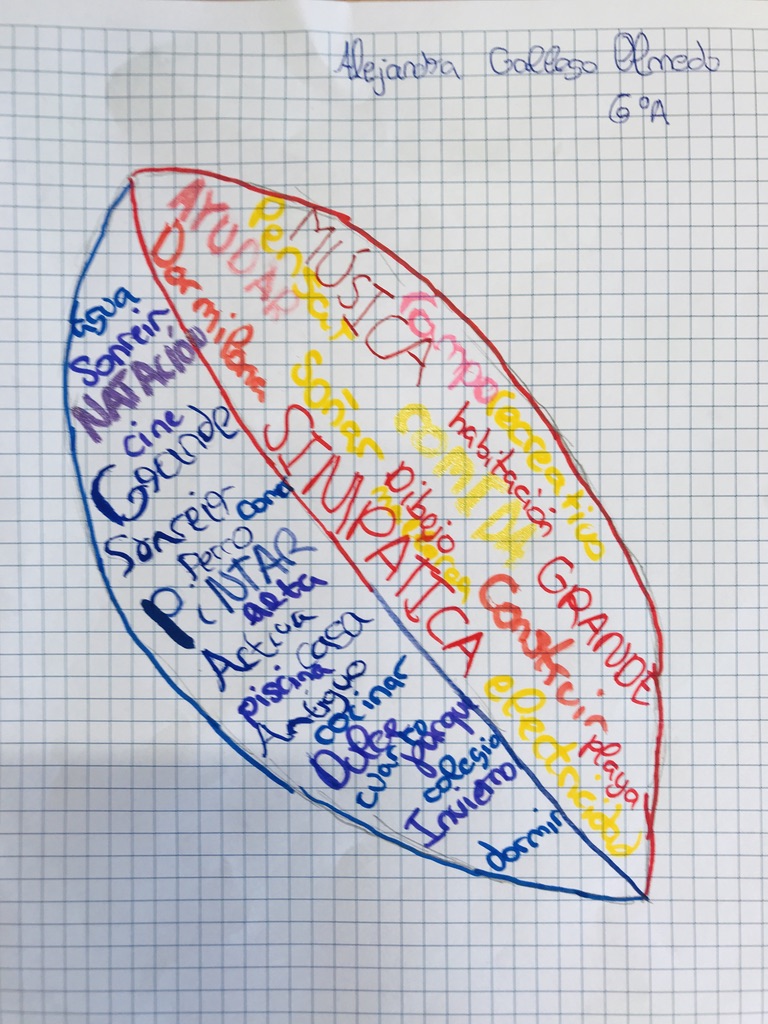 Alejandra Gallego Olmedo
6ºA
AYUDAR
Pensar
MÚSICA
Dormilona
Campo
recreativo
Soñar
COMIDA
habitación
SIMPATICA
Dibejo
GRANDE
Construir
electricidad
playa
agua
Sonreir
NATACIÓN
cine
Grande
Sonreir
cama
Perro
PiNTAR
alta
Activa
casa
piscina
Antiguo
cocinar
Dulce
parque
cuarto
colegio
Invierno
dormir